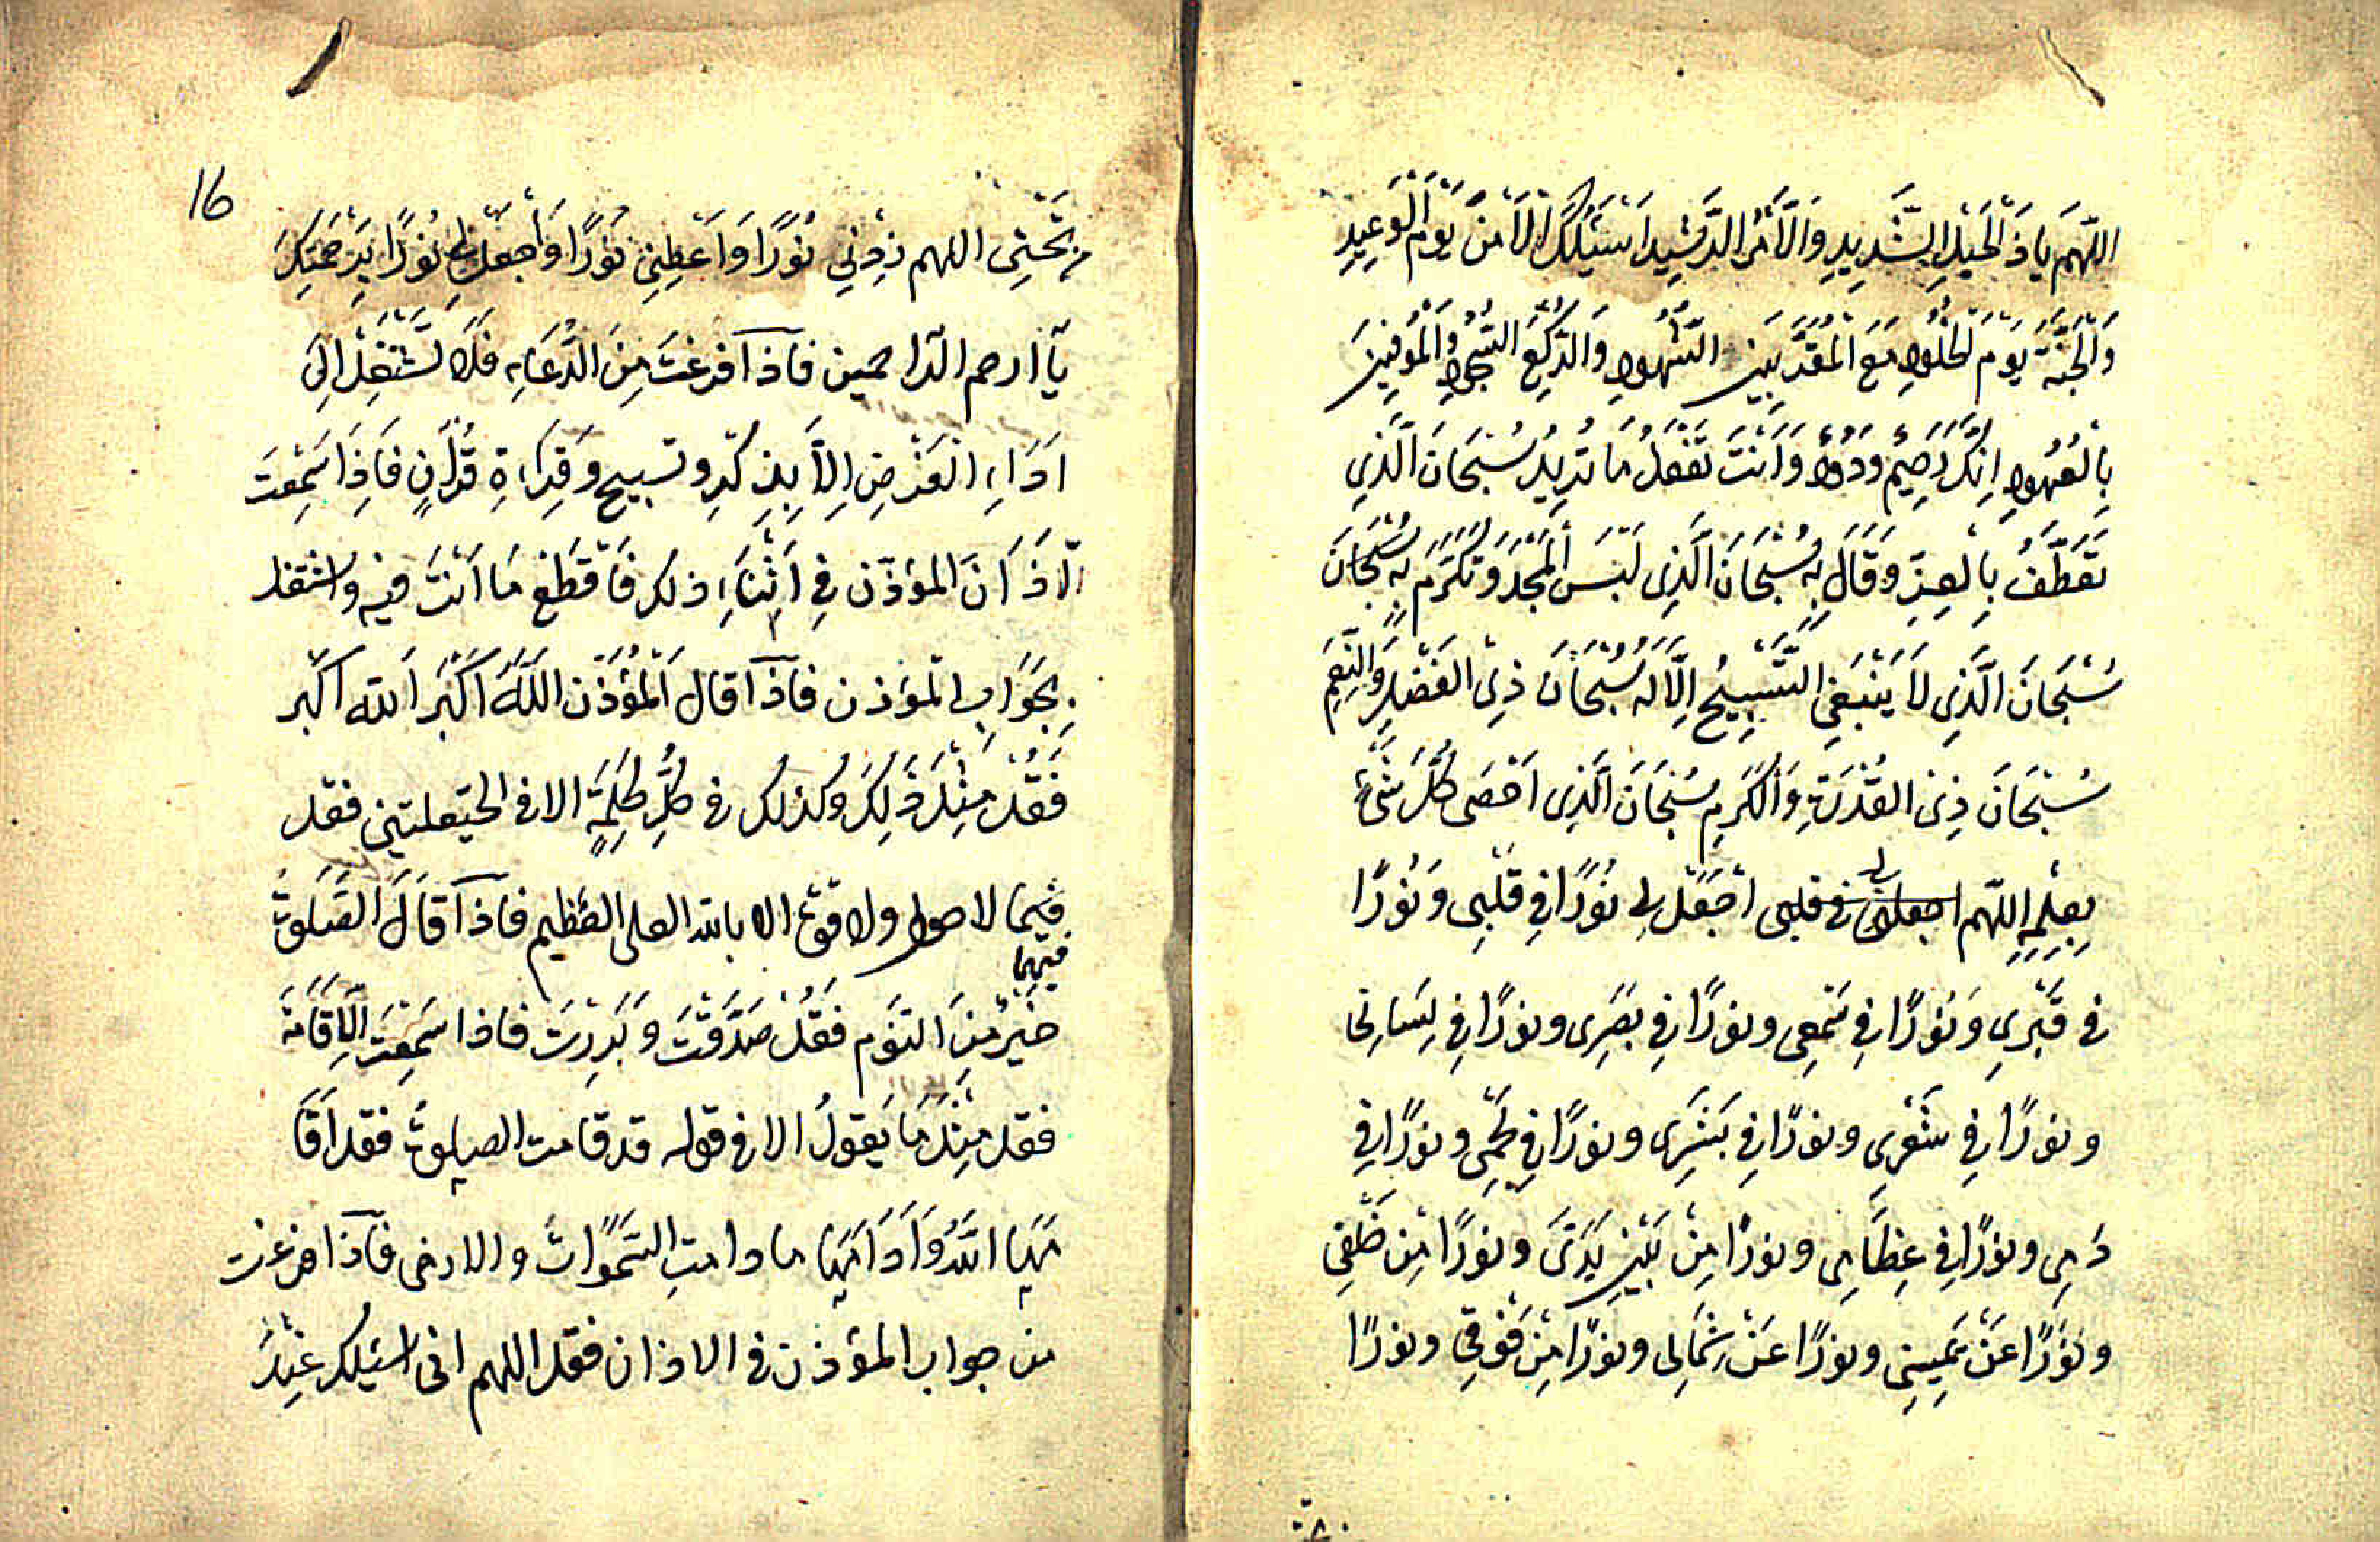 اللّهَمَ يا ذَ الْحَيْلِ الشَّدِيدِ وَالْاَمْرِ الرَّشِيدِ اَسْئَلُكَ الْاَمْنَ يَوْمَ الْوَعِيدِ
وَالْجَنَّةَ يَوْمَ الْخُلُودِ مَعَ الْمُقَرَّبِينَ الشُّهُودِ وَالرُّكَّعِ السُّجُودِ وَالْمُوفِينَ
بِالْعُهُودِ اِنَّكَ رَحِيمٌ وَدُودٌ وَاَنْتَ تَفْعَلُ مَا تُرِيدُ سُبْحَانَ الَّذِي
تَعَطَّفَ بِالْعِزِّ وَقَالَ بِهِ سُبْحَانَ الَّذِى لَبَسَ الْمَجْدَ وَتَكَرَّمَ بِهِ سُبْحَانَ
سُبْحَانَ الَّذِى لَا يَنْبَغِى التَّسْبِيحُ اِلَّا لَهُ سُبْحَانَ ذِى الْفَضْلِ وَالنِّعَمِ
سُبْحَانَ ذِى الْقُدْرَةِ وَالْكَرَمِ سُبْحَانَ الَّذِى اَحْصَى كُلَّ شَيْءٍ
بِعِلْمِهِ اللّهم اجعلنى فى قلبى اجْعَلْ لِى نُوْرًا فِى قَلْبِى وَنُورًا
فى قَبْرِى وَنُورًا فِى سَمْعِى ونورًا فِى بَصَرِى ونورًا فِى لِسَانِى
ونورًا فِى شَعْرِى ونورًا فِى بَشَرِى ونورًا فِى لَحْمِى ونورًا فِى
دَمِى ونورًا فِى عِظَامِى ونورًا مِنْ بَيْنِ يَدَىَّ ونورًا مِنْ خَلْفِى
ونُورًا عَنْ يَمِينِى ونورًا عَنْ شِمَالِى ونورًا مِنْ فَوْقِى ونورًا
16
مِنْ تَحْتِى اللهم زِدْنِي نُوْرًا وَاَعْطِنِى نُوْرًا وَاجْعَلْ لِى نُوْرًا بِرَحْمَتِكَ
يَا ارحم الراحمين فَاذَا فرغتَ مِنَ الدُّعَاءِ فَلَا تَشْتَغِلْ اِلَى
اَدَاءِ الْفَرْضِ اِلَّا بِذِكْرٍ وتسبيحٍ وَقِرَاءَةِ قُرْاٰنٍ فَاِذَا سَمِعْتَ
الْاَذَانَ المؤذّن فِى اَثْنَاءِ ذلك فَاقْطَعْ مَا اَنْتَ فيه واشتغل
بِجَوَابِ المؤذن فَاذَا قال الْمُؤَذّن اللّهُ اَكْبَر الله اكبر
فَقُلْ مِثْلَ ذَلِكَ وكذلك فى كُلِّ كَلِمَةٍ الا فى الحَيْعلتين فقل
فيهما لا حول ولا قوة الا بالله العلى العظيم فَاذَا قَالَ الصَّلَوةُ
فيهما
خَيْرٌ مِنَ النَّوم فَقُلْ صَدَّقْتَ وَبَرِرْتَ فاذا سَمِعْتَ الْاِقَامَةَ
فقل مِثْلَ مَا يَقُولُ الا فى قوله قد قامت الصلوةُ فقل اَقَا
مَهَا اللهُ وَاَدَامَهَا ما دامتِ السَّمَوَاتُ والارض فَاذَا فرغت
من جواب المؤذن فى الاذان فقل اللهم انى اسئلك عِنْدَ